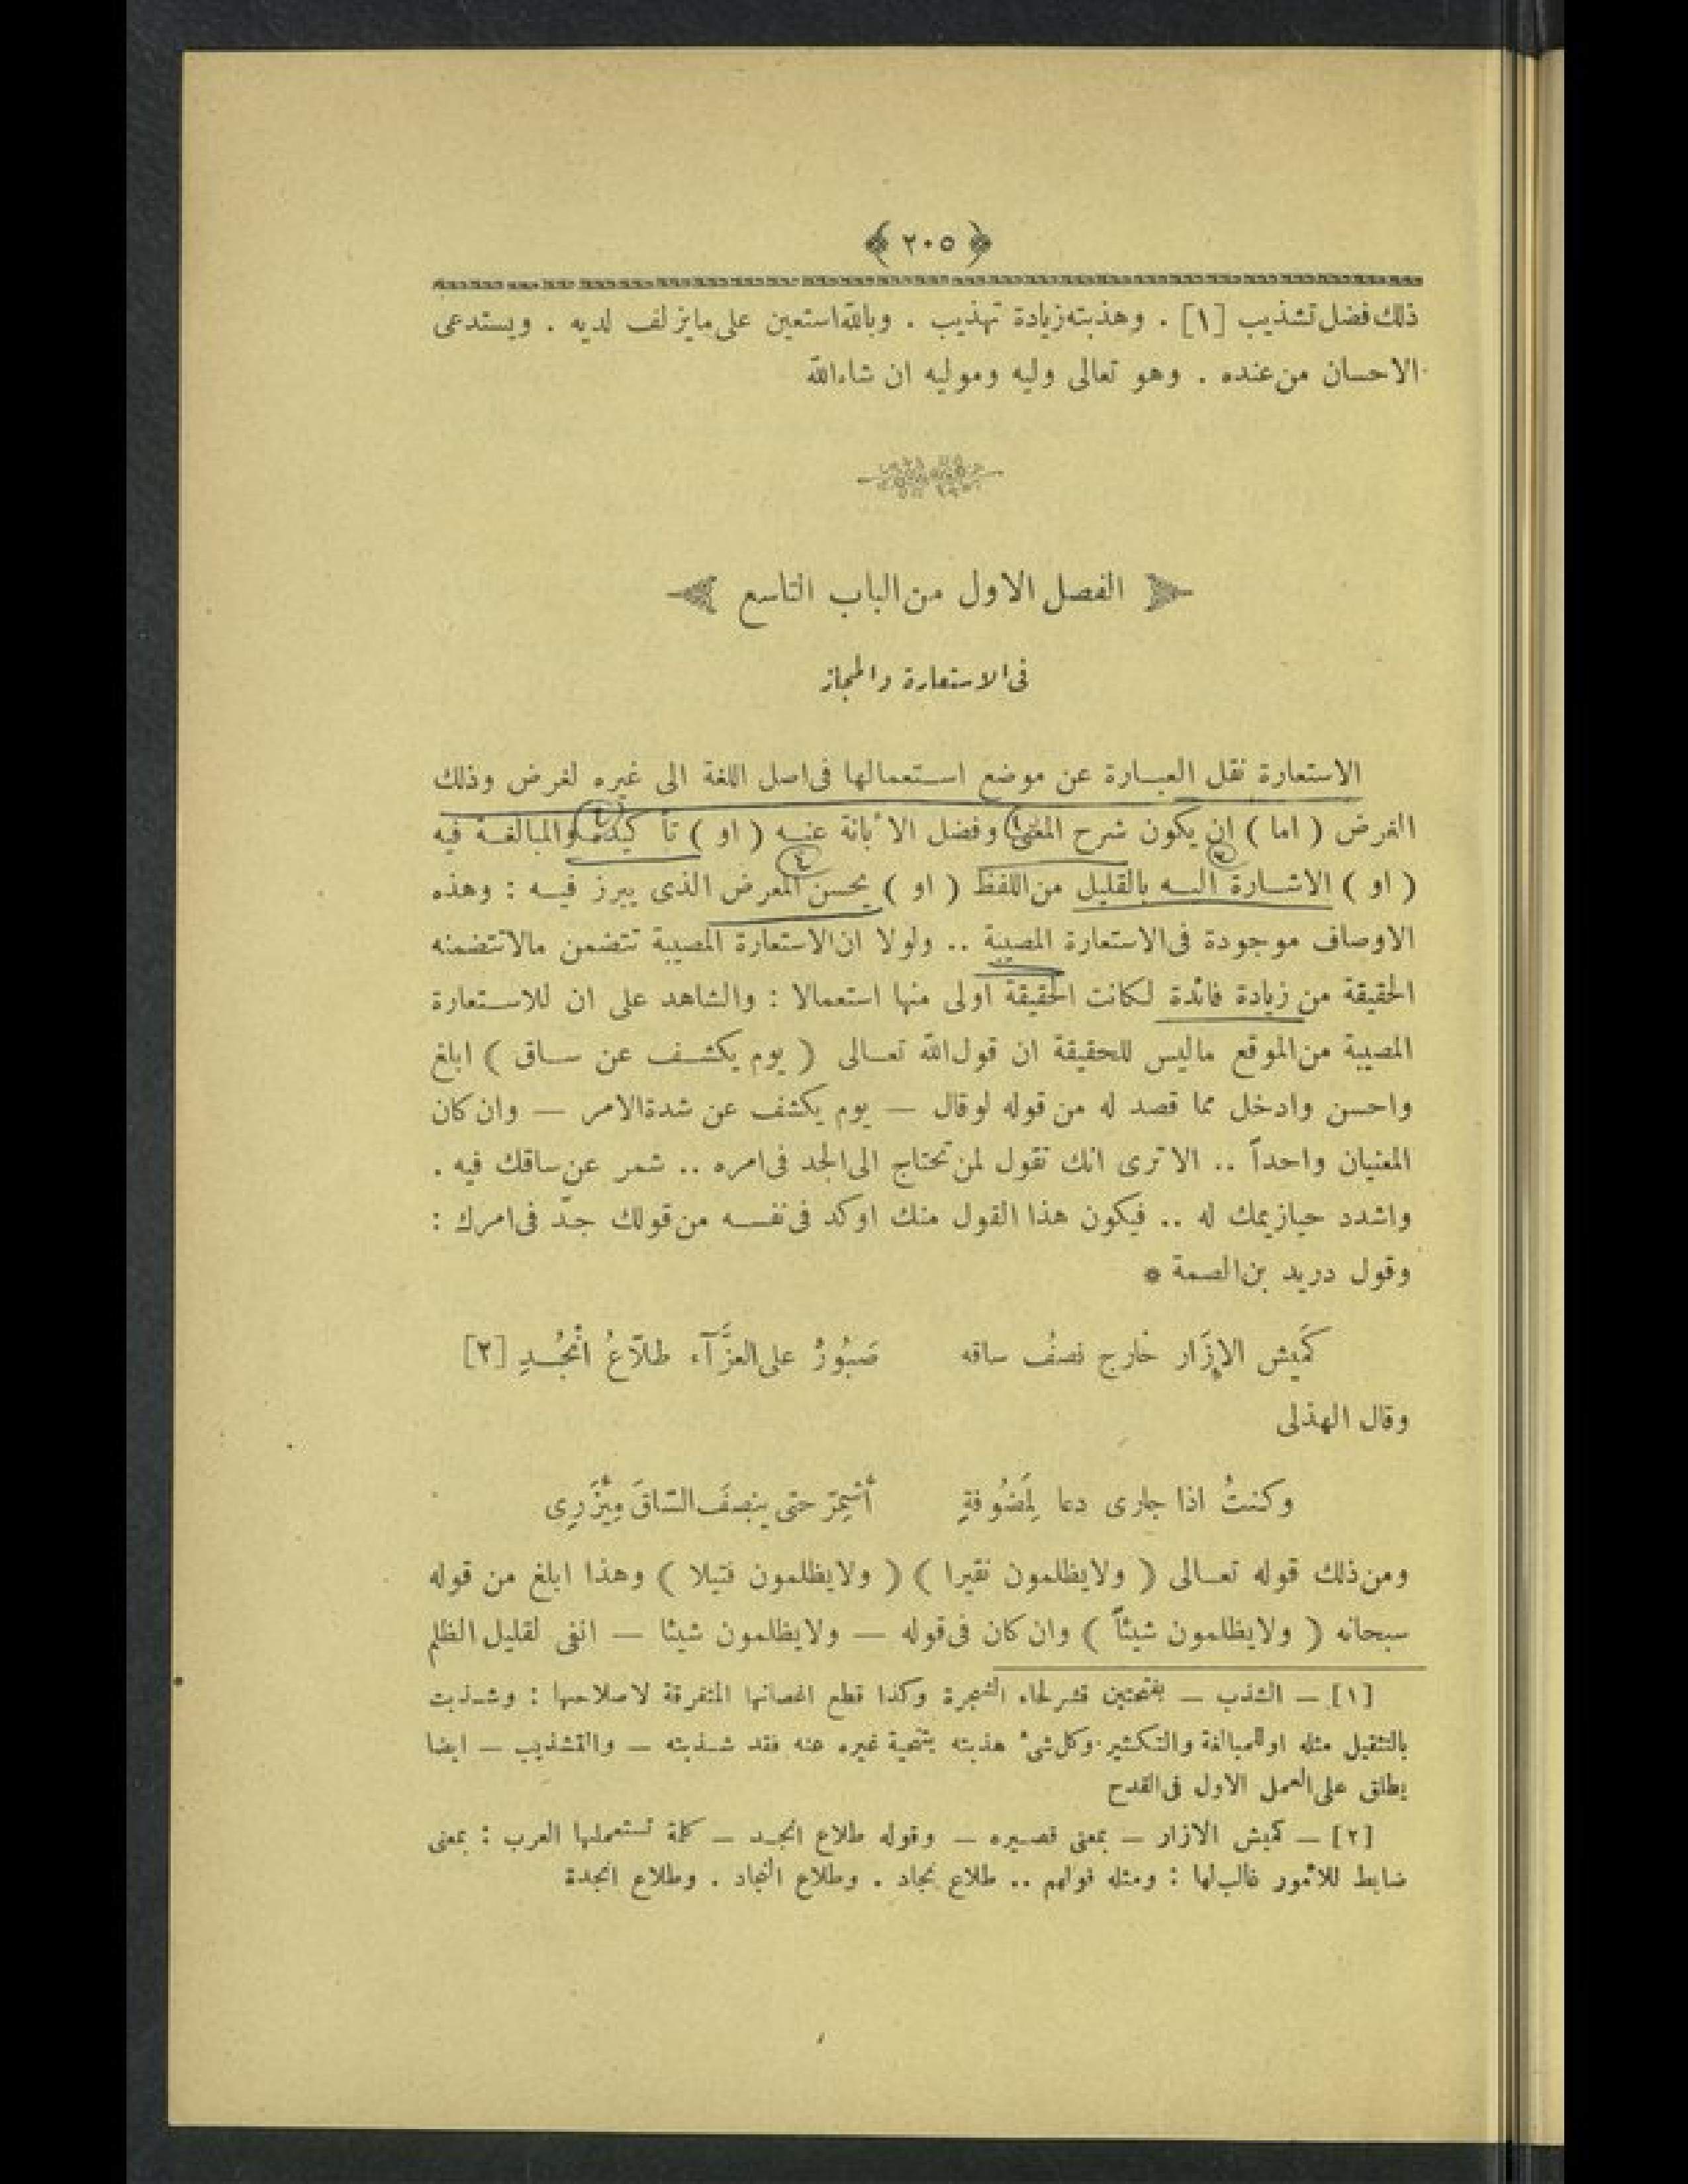 ﴿ ٢٠٥ ﴾
ذلك فضل تشذيب [١] . وهذبته زيادة تهذيب . وبالله استعين على مايزلف لديه . ويستدعى
الاحسان من عنده . وهو تعالى وليه وموليه ان شاءالله
الفصل الاول من الباب التاسع
فى الاستعارة والمجاز
الاستعارة نقل العبارة عن موضع استعمالها فى اصل اللغة الى غيره لغرض وذلك
الغرض ( اما ) ان يكون شرح المعنى وفضل الأبانة عنه ( او ) تأكيده والمبالغة فيه
( او ) الاشارة اليه بالقليل من اللفظ ( او ) يحسن المعرض الذى يبرز فيه : وهذه
الاوصاف موجودة فى الاستعارة المصيبة .. ولولا ان الاستعارة المصيبة تتضمن مالاتتضمنه
الحقيقة من زيادة فائدة لكانت الحقيقة اولى منها استعمالا : والشاهد على ان للاستعارة
المصيبة من الموقع ماليس للحقيقة ان قول الله تعالى ( يوم يكشف عن ساق ) ابلغ
واحسن وادخل مما قصد له من قوله لوقال — يوم يكشف عن شدة الامر — وان كان
المعنيان واحداً .. الا ترى انك تقول لمن تحتاج الى الجد فى امره .. شمر عن ساقك فيه .
واشدد حيازيمك له .. فيكون هذا القول منك اوكد فى نفسه من قولك جدّ فى امرك :
وقول دريد بن الصمة *
كَمِيش الإزَار خَارج نصفُ ساقه صَبُورٌ على العزَّآء طلّاعُ انْجُدِ [٢]
وقال الهذلى
وكنتُ اذا جارى دعا لِمَضُوفةٍ أُشمِّر حتى ينصفَ السّاقَ مِئزَرِى
ومن ذلك قوله تعالى ( ولايظلمون نقيرا ) ( ولايظلمون فتيلا ) وهذا ابلغ من قوله
سبحانه ( ولايظلمون شيئاً ) وان كان فى قوله — ولايظلمون شيئا — انفى لقليل الظلم
[١] — الشذب — بفتحتين قشر لحاء الشجرة وكذا قطع اغصانها المتفرقة لاصلاحها : وشذبت
بالتثقيل مثله او للمبالغة والتكثير وكل شىء هذبته بتنحية غيره عنه فقد شذبته — والتشذيب — ايضا
يطلق على العمل الاول فى القدح
[٢] — كميش الازار — بمعنى قصيره — وقوله طلاع انجد — كلمة تستعملها العرب : بمعنى
ضابط للأمور غالب لها : ومثله قولهم .. طلاع نجاد . وطلاع النجاد . وطلاع انجدة